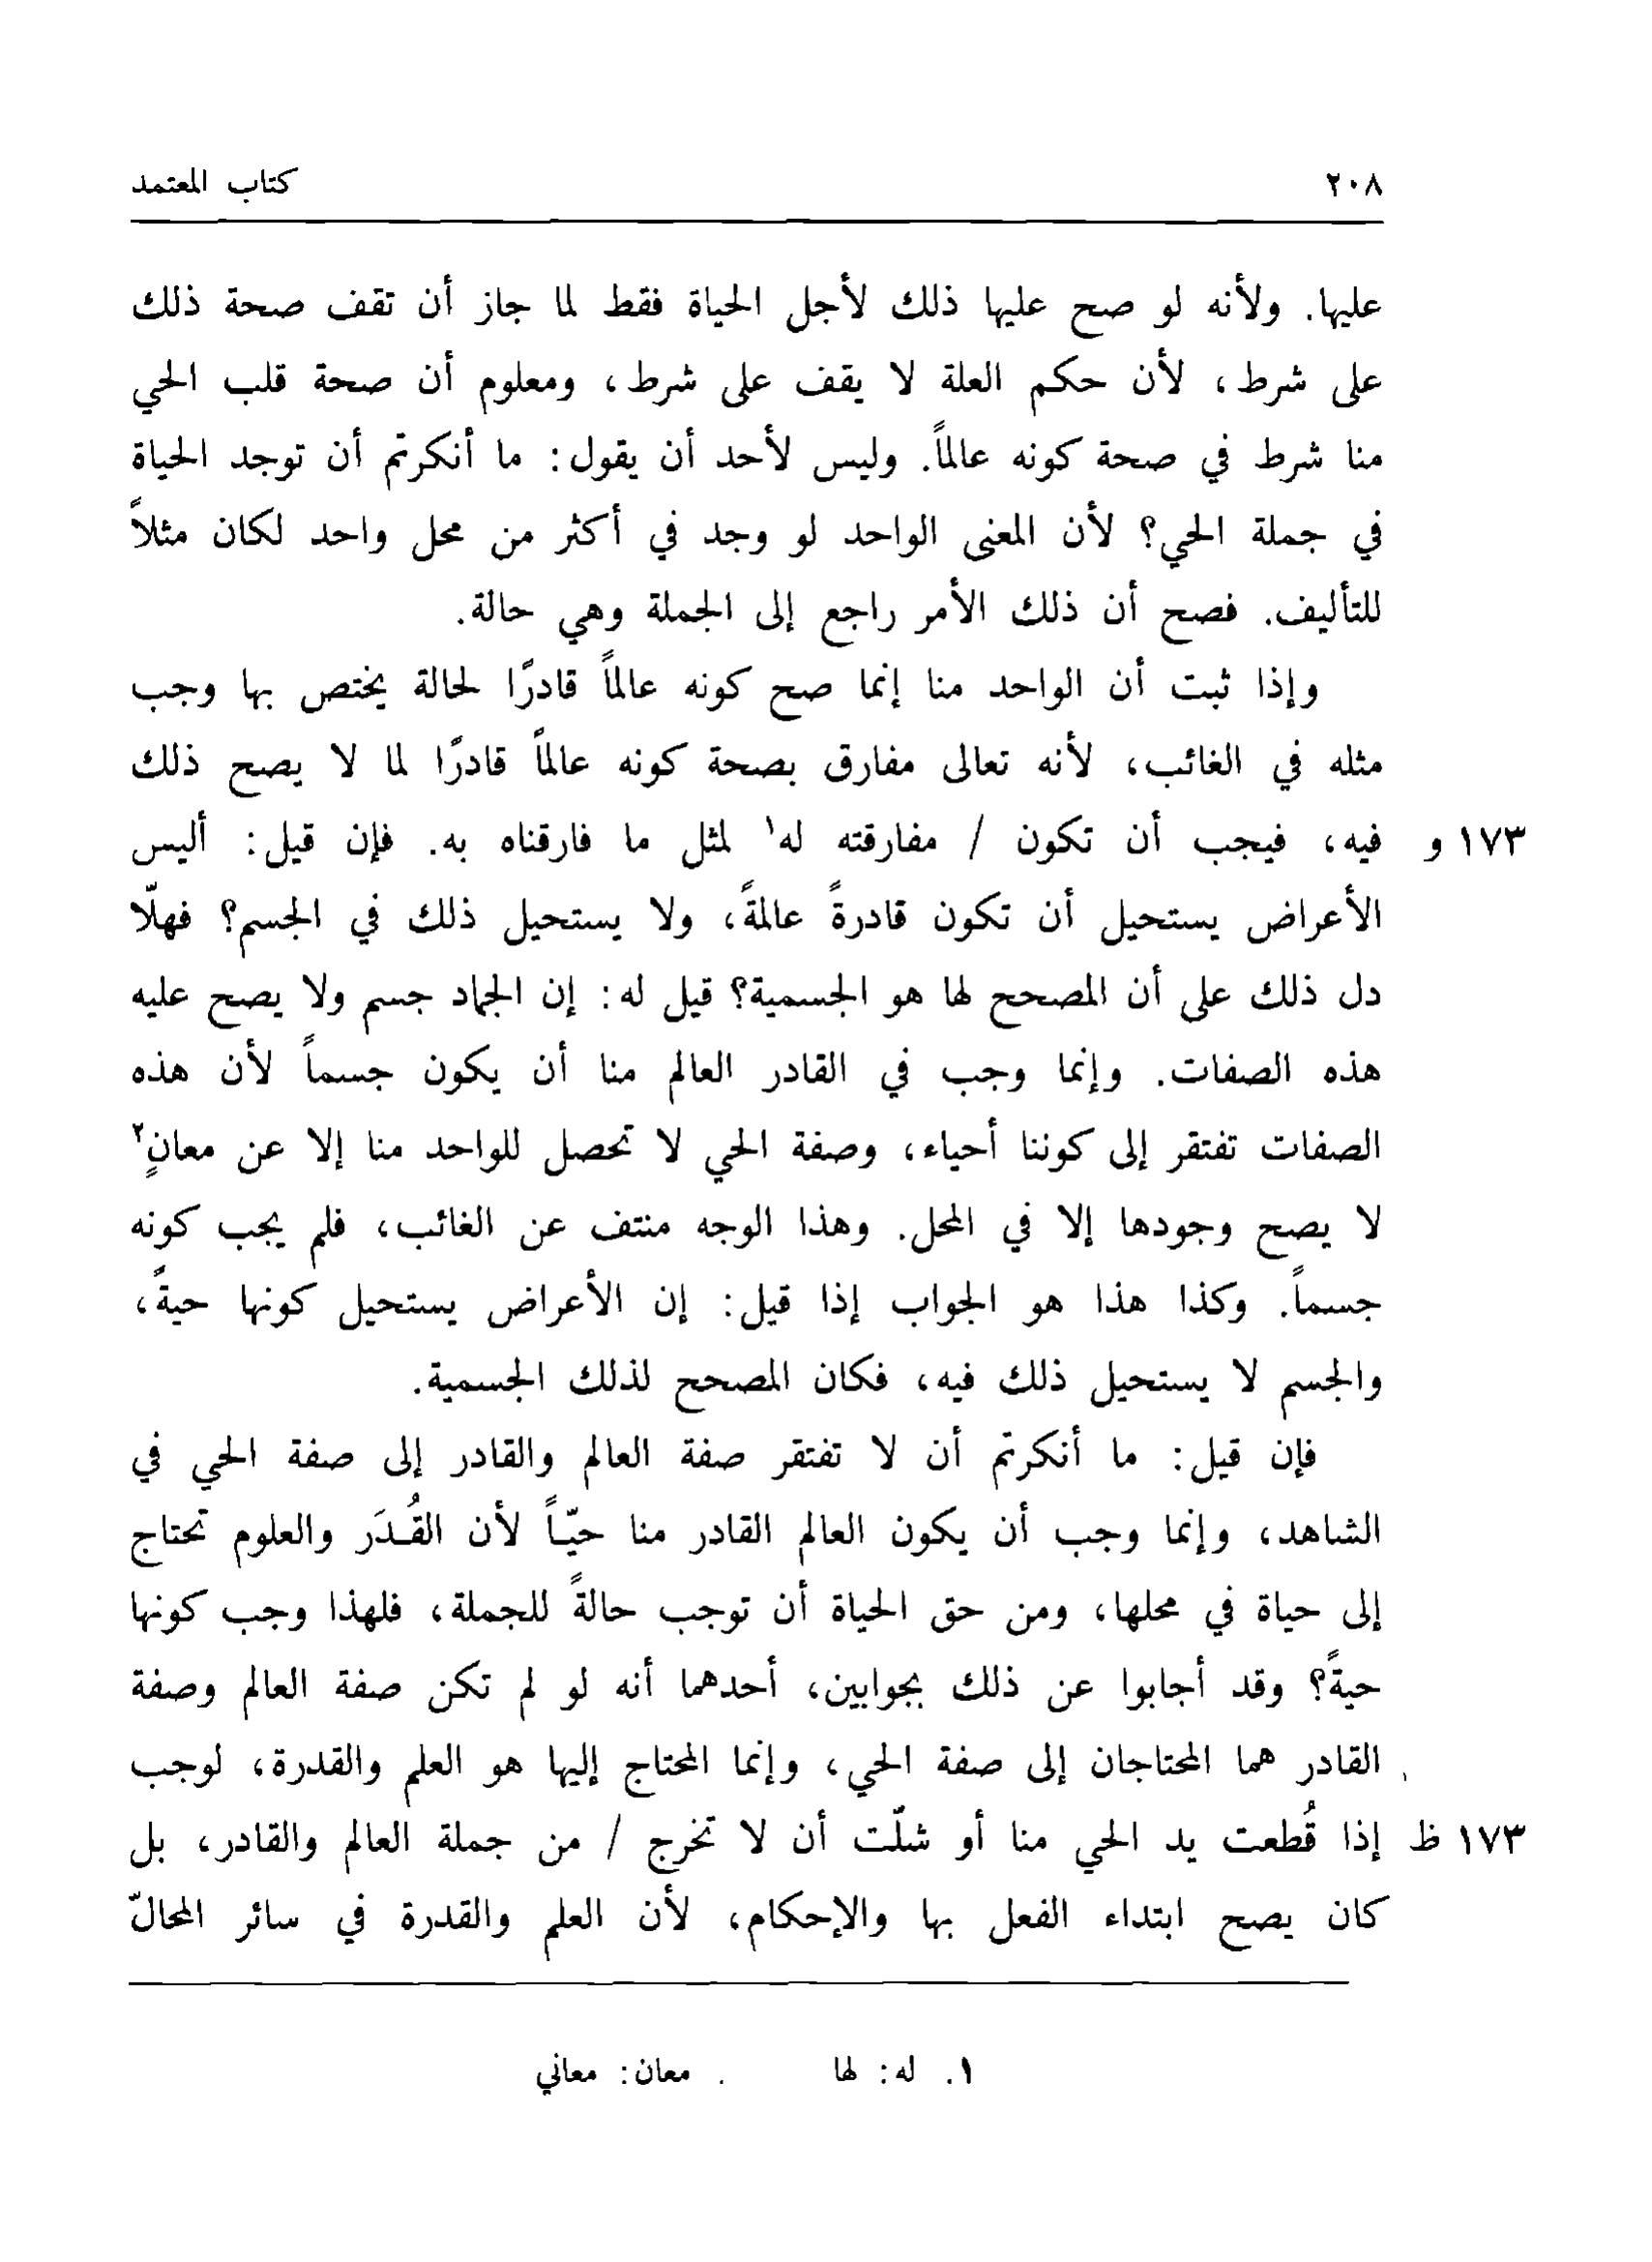 ٢٠٨ كتاب المعتمد
عليها. ولأنه لو صح عليها ذلك لأجل الحياة فقط لما جاز أن تقف صحة ذلك
على شرط، لأن حكم العلة لا يقف على شرط، ومعلوم أن صحة قلب الحي
منا شرط في صحة كونه عالماً. وليس لأحد أن يقول: ما أنكرتم أن توجد الحياة
في جملة الحي؟ لأن المعنى الواحد لو وجد في أكثر من محل واحد لكان مثلاً
للتأليف. فصح أن ذلك الأمر راجع إلى الجملة وهي حالة.
وإذا ثبت أن الواحد منا إنما صح كونه عالماً قادرًا لحالة يختص بها وجب
مثله في الغائب، لأنه تعالى مفارق بصحة كونه عالماً قادرًا لما لا يصح ذلك
١٧٣ و فيه، فيجب أن تكون / مفارقته له١ لمثل ما فارقناه به. فإن قيل: أليس
الأعراض يستحيل أن تكون قادرةً عالمةً، ولا يستحيل ذلك في الجسم؟ فهلّا
دل ذلك على أن المصحح لها هو الجسمية؟ قيل له: إن الجماد جسم ولا يصح عليه
هذه الصفات. وإنما وجب في القادر العالم منا أن يكون جسماً لأن هذه
الصفات تفتقر إلى كوننا أحياء، وصفة الحي لا تحصل للواحد منا إلا عن معانٍ٢
لا يصح وجودها إلا في المحل. وهذا الوجه منتف عن الغائب، فلم يجب كونه
جسماً. وكذا هذا هو الجواب إذا قيل: إن الأعراض يستحيل كونها حيةً،
والجسم لا يستحيل ذلك فيه، فكان المصحح لذلك الجسمية.
فإن قيل: ما أنكرتم أن لا تفتقر صفة العالم والقادر إلى صفة الحي في
الشاهد، وإنما وجب أن يكون العالم القادر منا حيّاً لأن القُدَر والعلوم تحتاج
إلى حياة في محلها، ومن حق الحياة أن توجب حالةً للجملة، فلهذا وجب كونها
حيةً؟ وقد أجابوا عن ذلك بجوابين، أحدهما أنه لو لم تكن صفة العالم وصفة
القادر هما المحتاجان إلى صفة الحي، وإنما المحتاج إليها هو العلم والقدرة، لوجب
١٧٣ ظ إذا قُطعت يد الحي منا أو شلّت أن لا تخرج / من جملة العالم والقادر، بل
كان يصح ابتداء الفعل بها والإحكام، لأن العلم والقدرة في سائر المحالّ
١. له: لها . معان: معاني